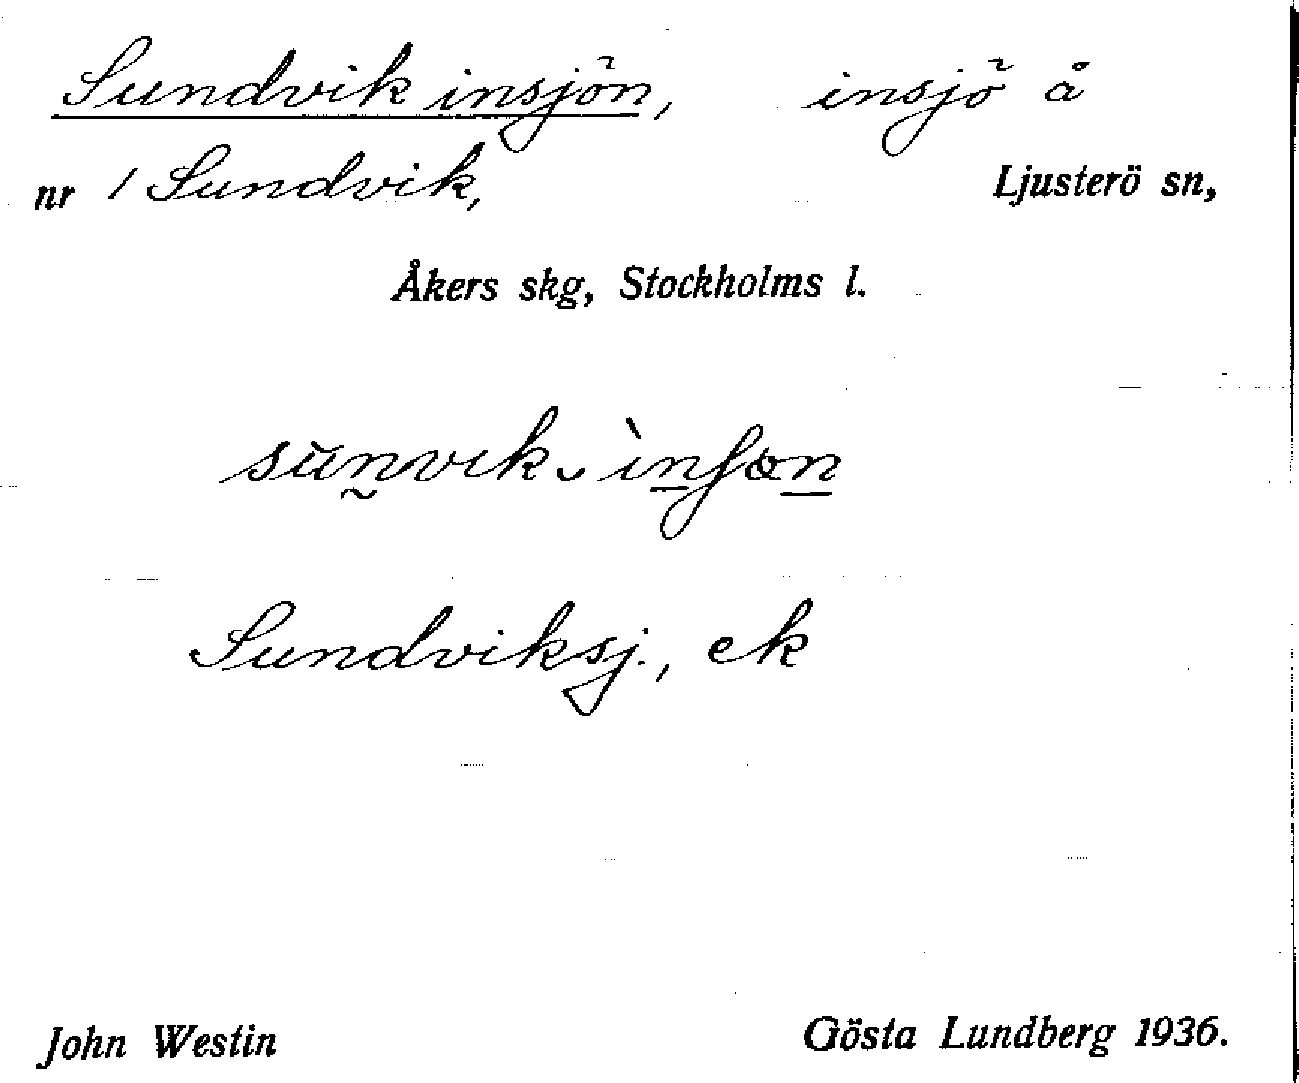 Sundvik insjön, insjö å
nr 1 Sundvik, Ljusterö sn,
Åkers skg, Stockholms l.
Sundviksj., ek
John Westin Gösta Lundberg 1936.